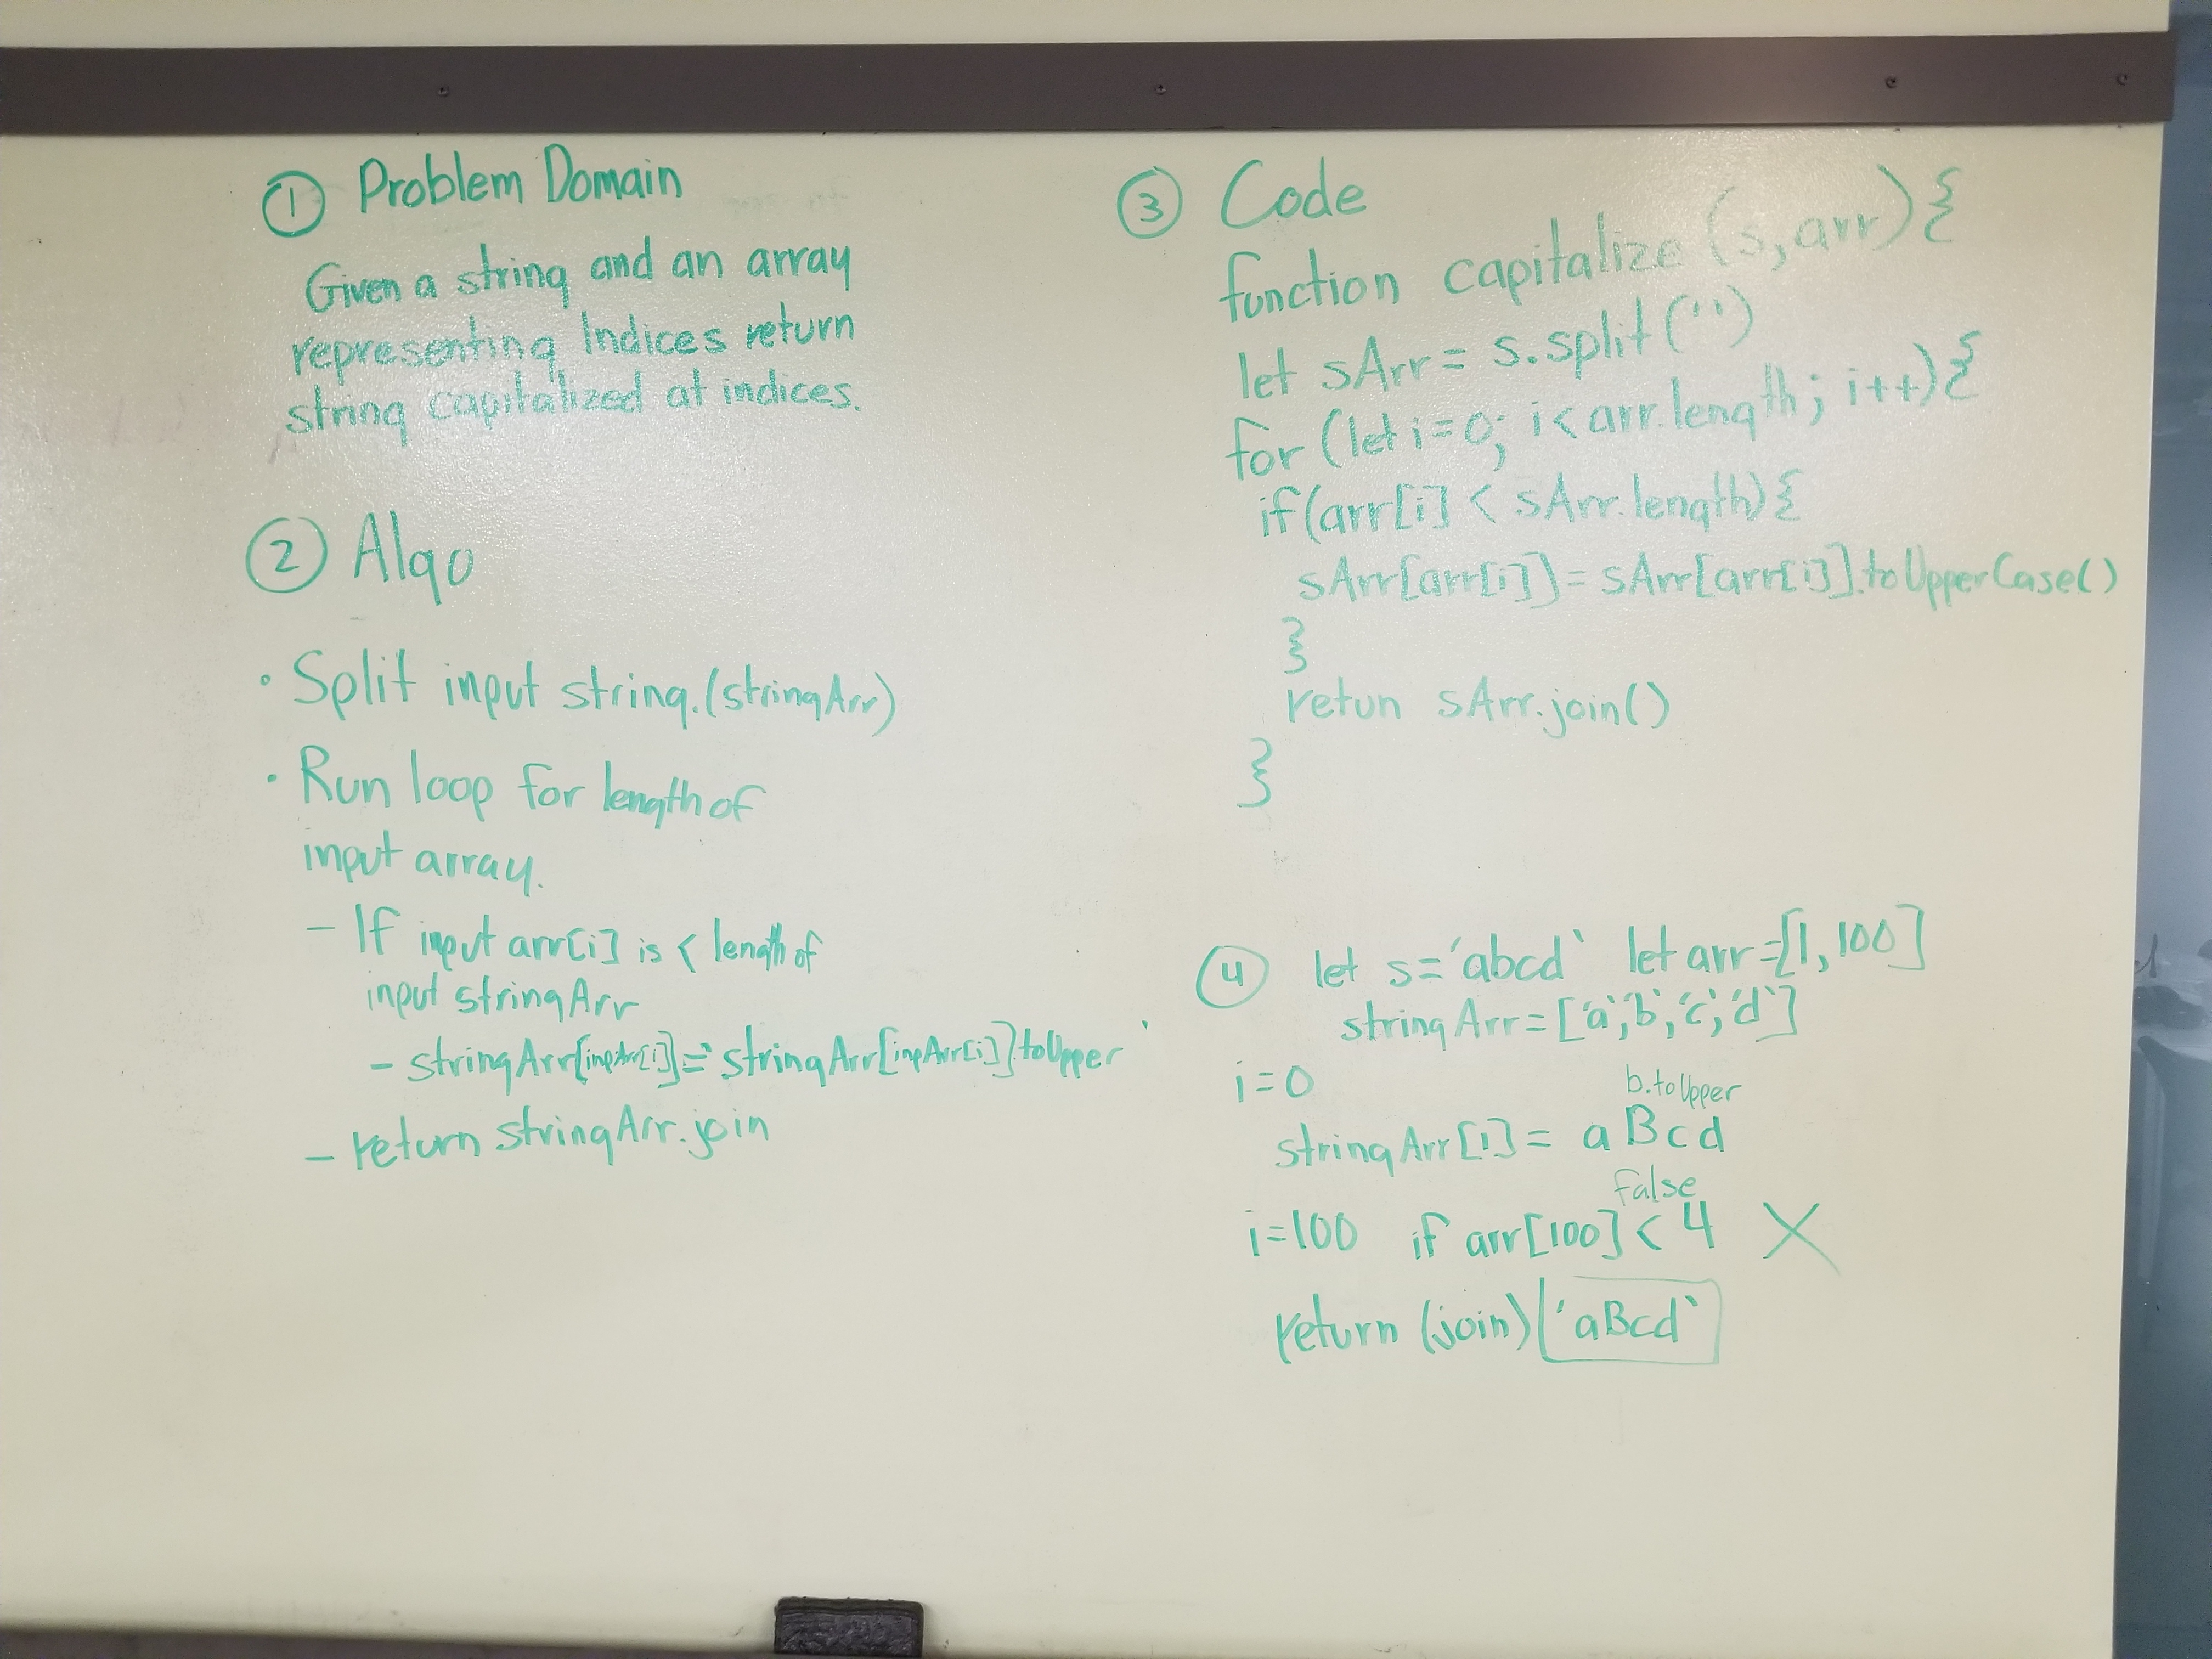 ① Problem Domain
Given a string and an array
representing Indices return
string capitalized at indices.
② Algo
• Split input string. (stringArr)
• Run loop for length of
input array.
- If input arr[i] is < length of
input stringArr
- stringArr[inpArr[i]] = stringArr[inpArr[i]].toUpper
- return stringArr.join
③ Code
function capitalize (s, arr) {
let sArr = s.split('')
for (let i=0; i< arr.length; i++) {
if (arr[i] < sArr.length) {
sArr[arr[i]] = sArr[arr[i]].toUpperCase()
}
retun sArr.join()
}
④ let s = 'abcd` let arr = [1, 100]
stringArr = ['a`,'b`,'c`,'d`]
i=0
b.toUpper
stringArr[1] = a B c d
false
i=100 if arr[100] < 4 X
return (join) 'aBcd`